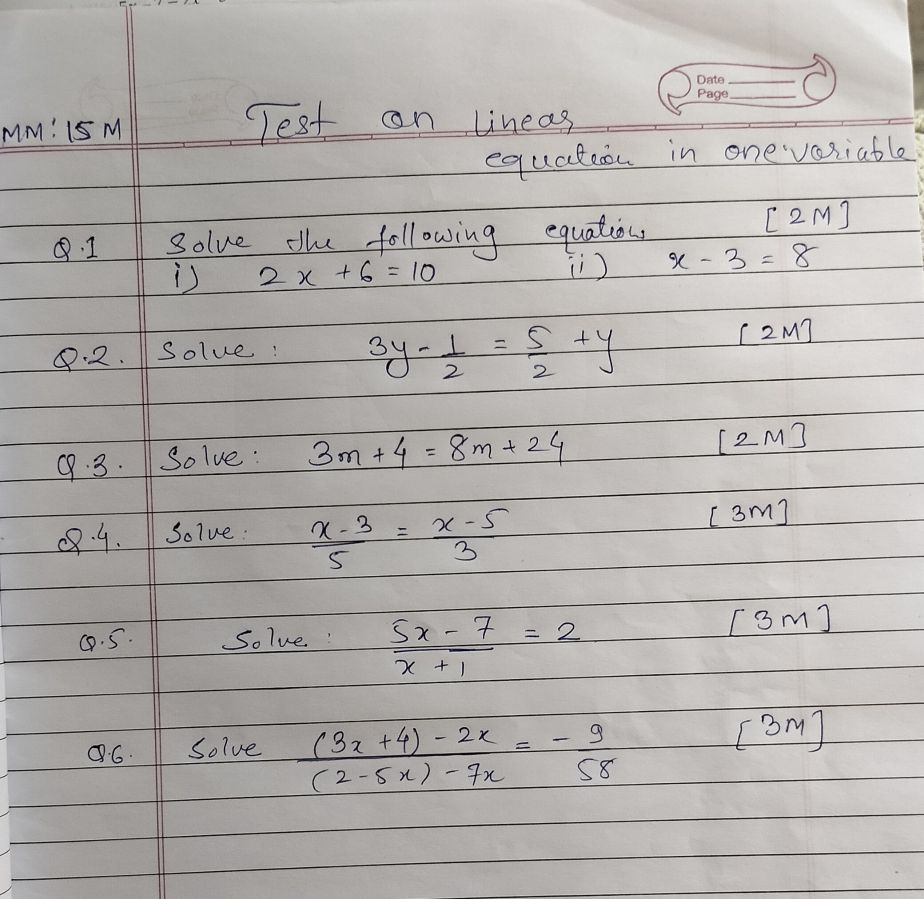 Date
Page
MM: 15 M Test on Linear
equation in one variable
Q.1 Solve the following equations [2M]
i) 2x + 6 = 10 ii) x - 3 = 8
Q.2. Solve : 3y - 1/2 = 5/2 + y [2M]
Q.3. Solve: 3m + 4 = 8m + 24 [2M]
Q.4. Solve: (x - 3)/5 = (x - 5)/3 [3M]
Q.5. Solve : (5x - 7)/(x + 1) = 2 [3M]
Q.6. Solve ((3x + 4) - 2x)/((2 - 5x) - 7x) = - 9/58 [3M]